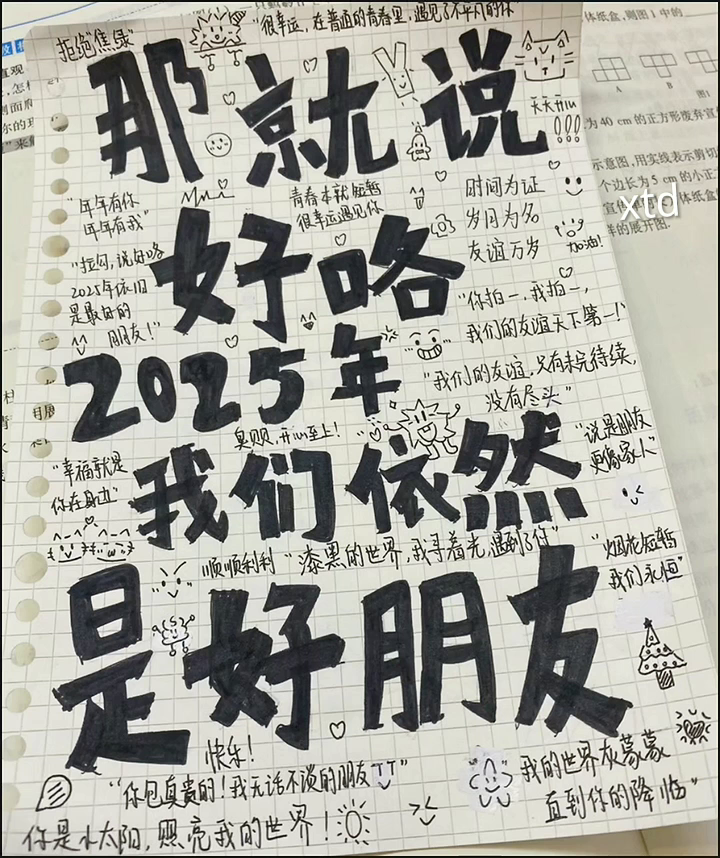 "很幸运，在普通的青春里，遇见了不平凡的你"
拒绝焦绿
那就说
天天开心
!!!
"年年有你
年年有我"
青春本就短暂
很幸运遇见你
时间为证
岁月为名
友谊万岁
加油!
好咯
"拉勾，说好咯
2025年依旧
是最好的
朋友!"
"你拍一，我拍一，
我们的友谊天下第一!"
2025年
"我们的友谊，只有未完待续，
没有尽头"
臭贝贝，开心至上!
"说是朋友
更像家人"
我们依然
"幸福就是
你在身边"
顺顺利利
"漆黑的世界，我寻着光，遇到了你"
"烟花短暂
我们永恒"
是好朋友
快乐!
"你包真贵的!我无话不谈的朋友"
"我的世界灰蒙蒙
直到你的降临"
你是小太阳，照亮我的世界!
xtd
体纸盒，则图1中的
A
B
图1
为40 cm的正方形废弃宣
示意图，用实线表示剪切
个边长为5 cm的小正方
体纸盒
样的展开图.